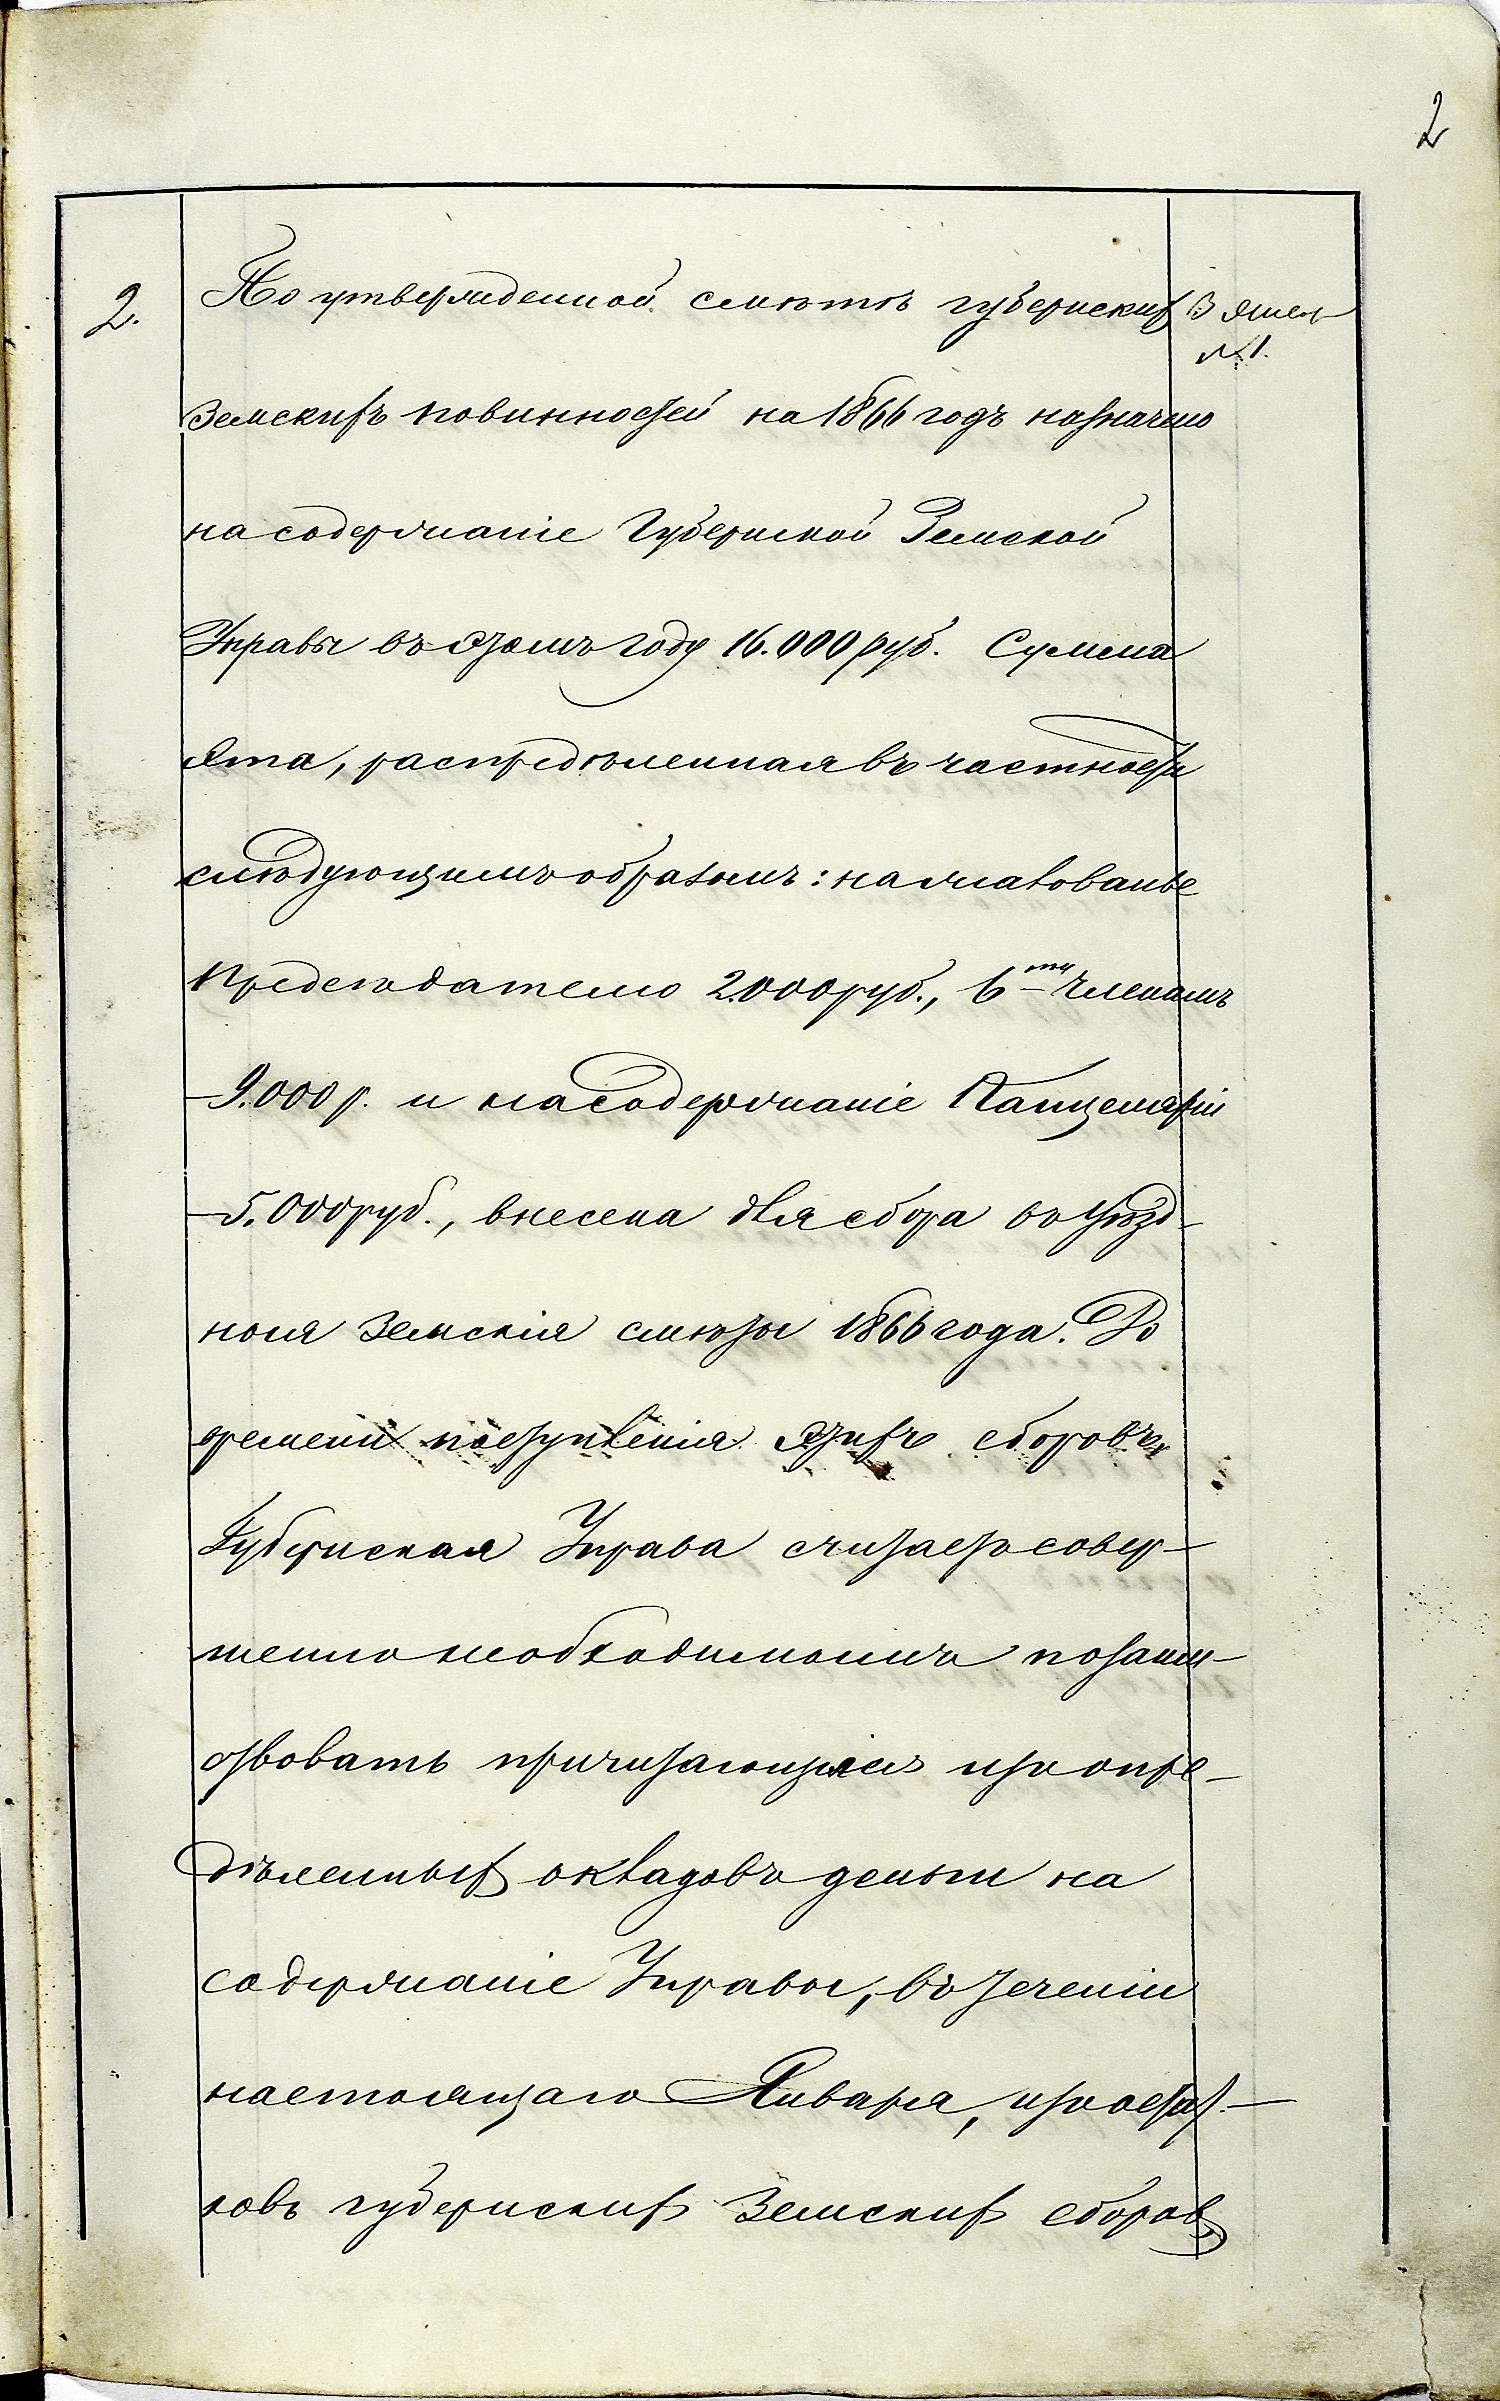 2
2. По утвержденной смѣтѣ губернских
Земскихъ повинностей на 1866 годъ назначено
на содержаніе Губернской Земской
Управы въ этомъ году 16.000 руб. Сумма
эта, распредѣленная въ частности
слѣдующимъ образомъ: на жалованье
Предсѣдателю 2.000 руб., 6-ти Членамъ
–9.000 р. и на содержаніе Канцеляріи
–5.000 руб., внесена для сбора въ Уѣзд–
ныя Земскія смѣты 1866 года. До
времени поступленія этихъ сборовъ,
Губернская Управа считаетъ совер–
шенно необходимымъ позаим–
ствовать причитающіяся изъ опре–
дѣленных окладовъ деньги на
содержаніе Управы, въ теченіи
настоящаго Января, изъ остат–
ковъ губернских Земских сборов,
В
№ 1.